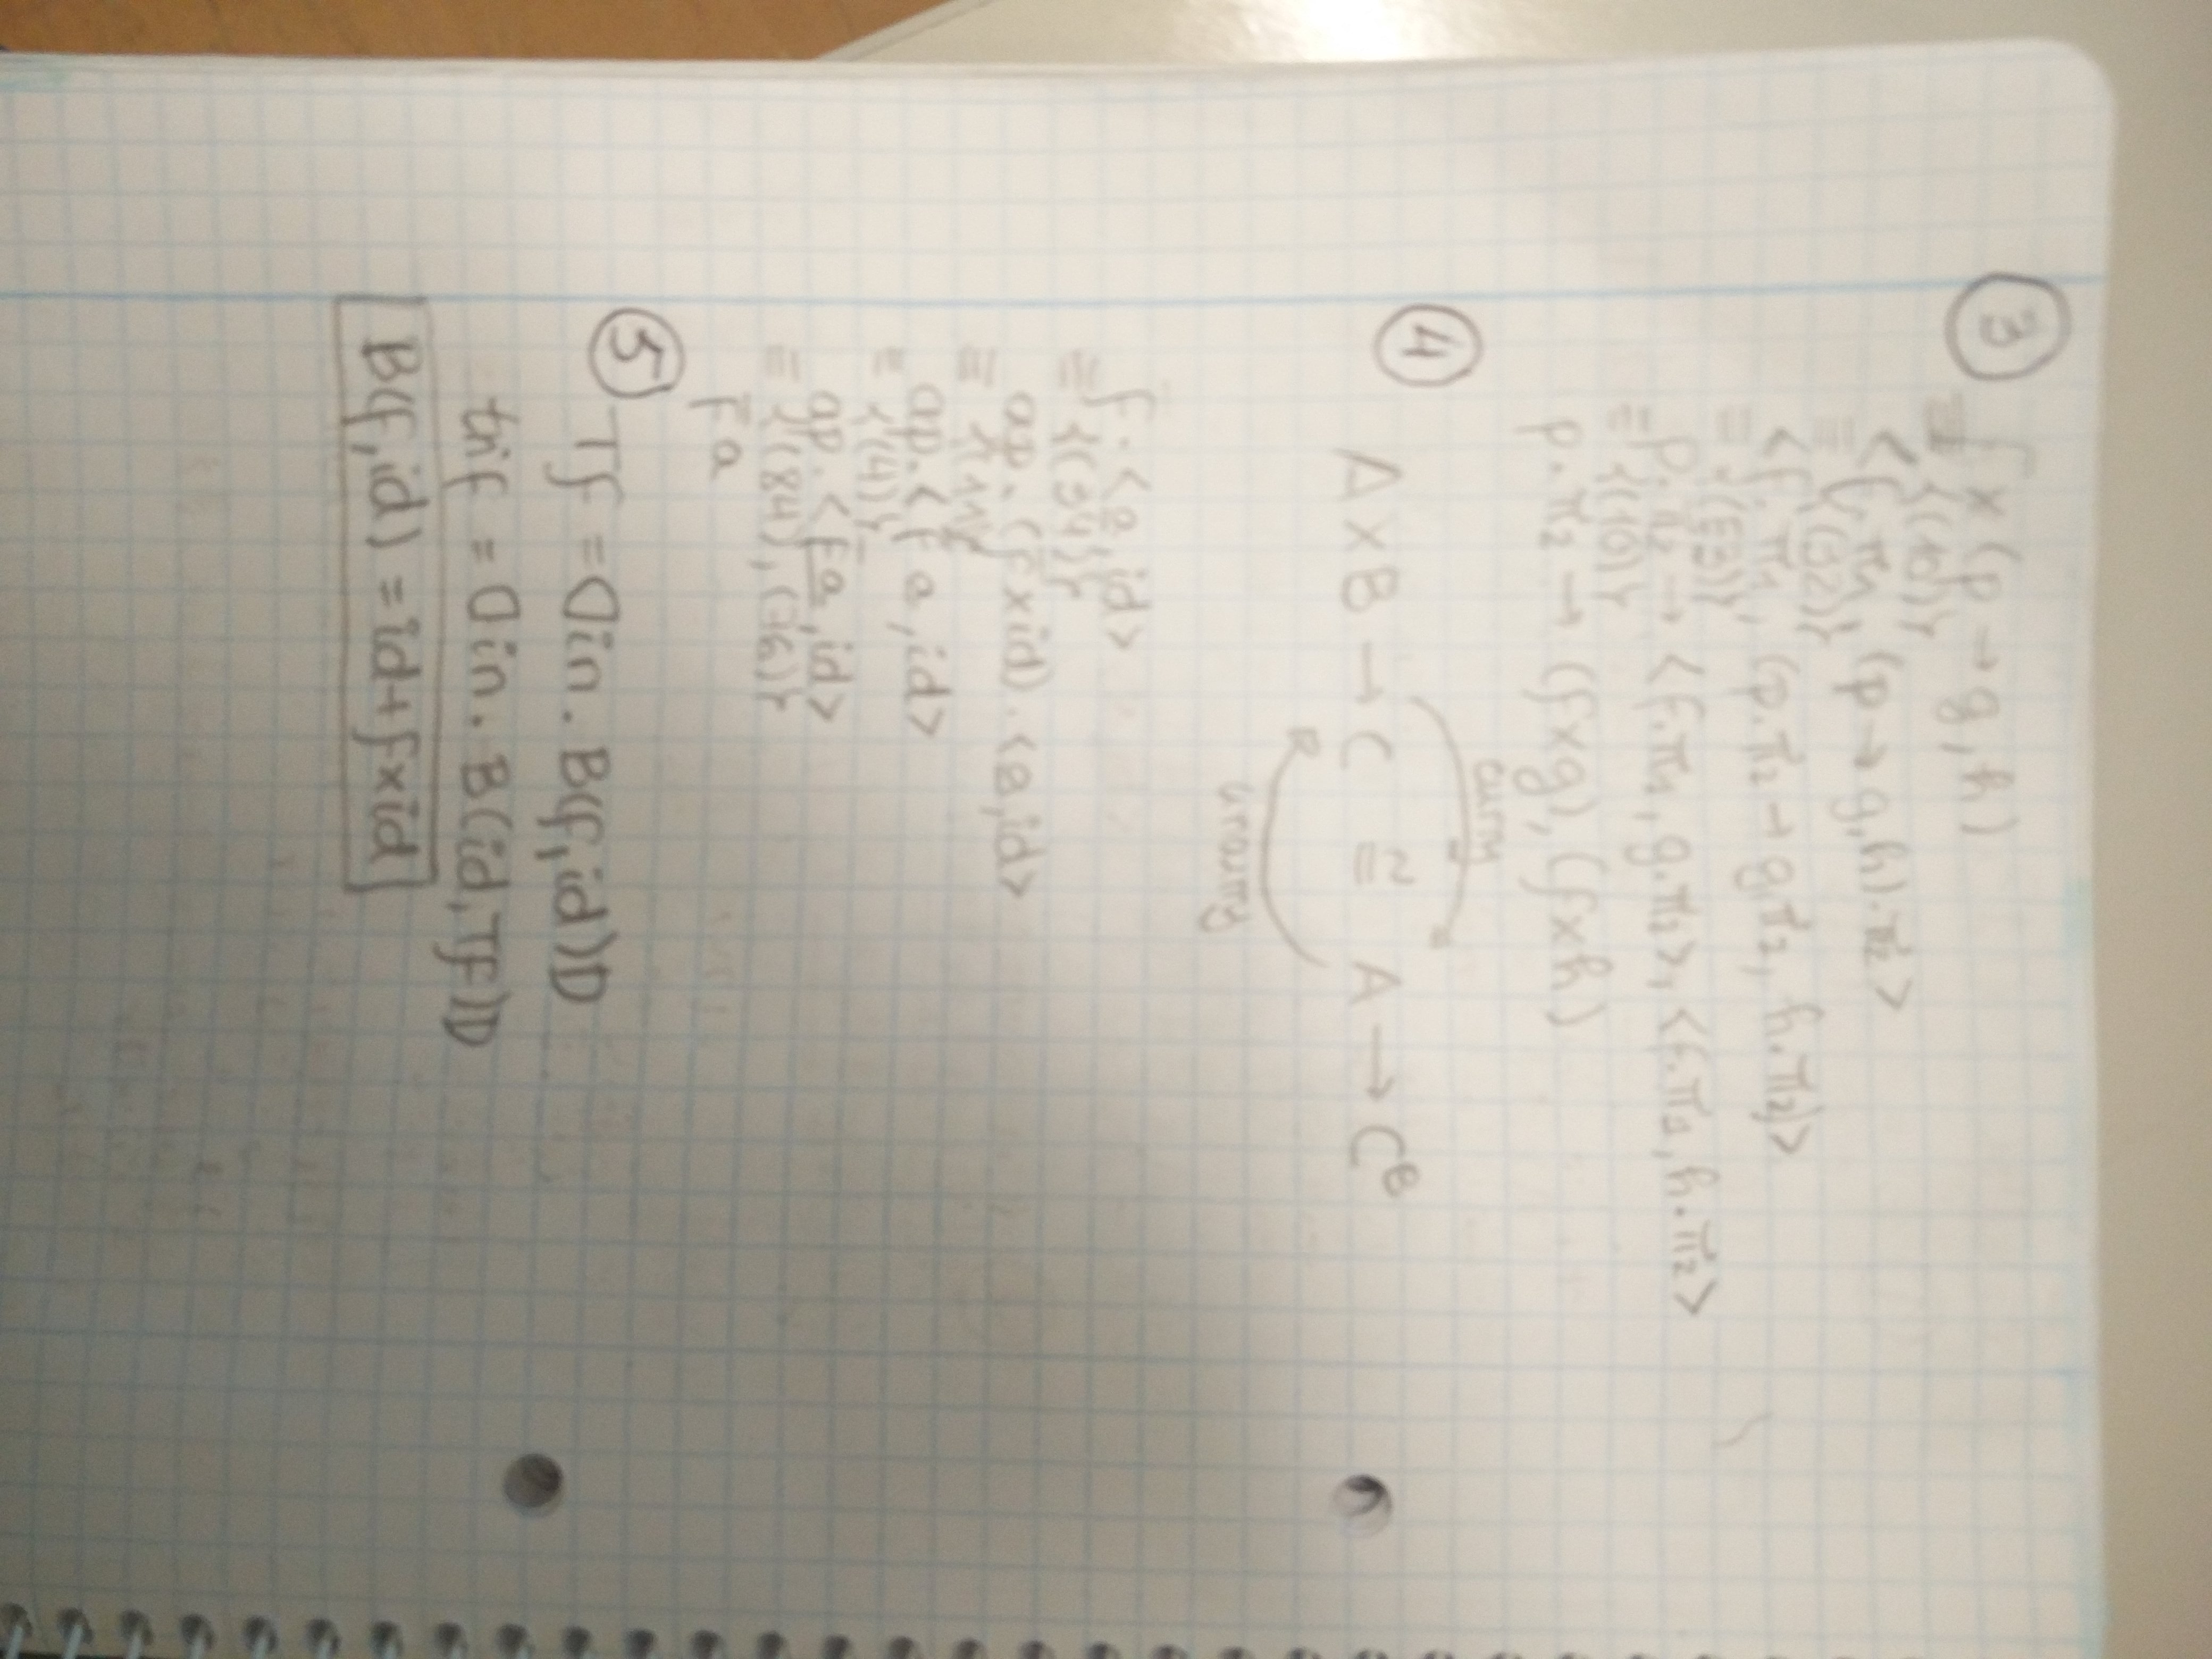 3 f × (p → g, h)
≡ {(10)}
<f. π1, (p → g,h).π2>
≡ {(32)}
<f. π1, (p.π2 → g.π2, h.π2)>
≡ {(53)}
p. π2 → <f.π1, g.π2>, <f.π1, h.π2>
≡ {(10)}
p. π2 → (f×g), (f×h)
curry
4 A×B → C ≅ A → C^B
uncurry
f. <a, id>
≡ {(34)}
ap. (f̅ ×id). <a, id>
≡ {(11)}
ap. <f̅ a, id>
≡ {(4)}
ap. <f̅ a, id>
≡ {(84), (76)}
f̅ a
5 Tf = ⦇in. B(f,id)⦈
tri f = ⦇in. B(id,Tf)⦈
B(f,id) = id+f×id